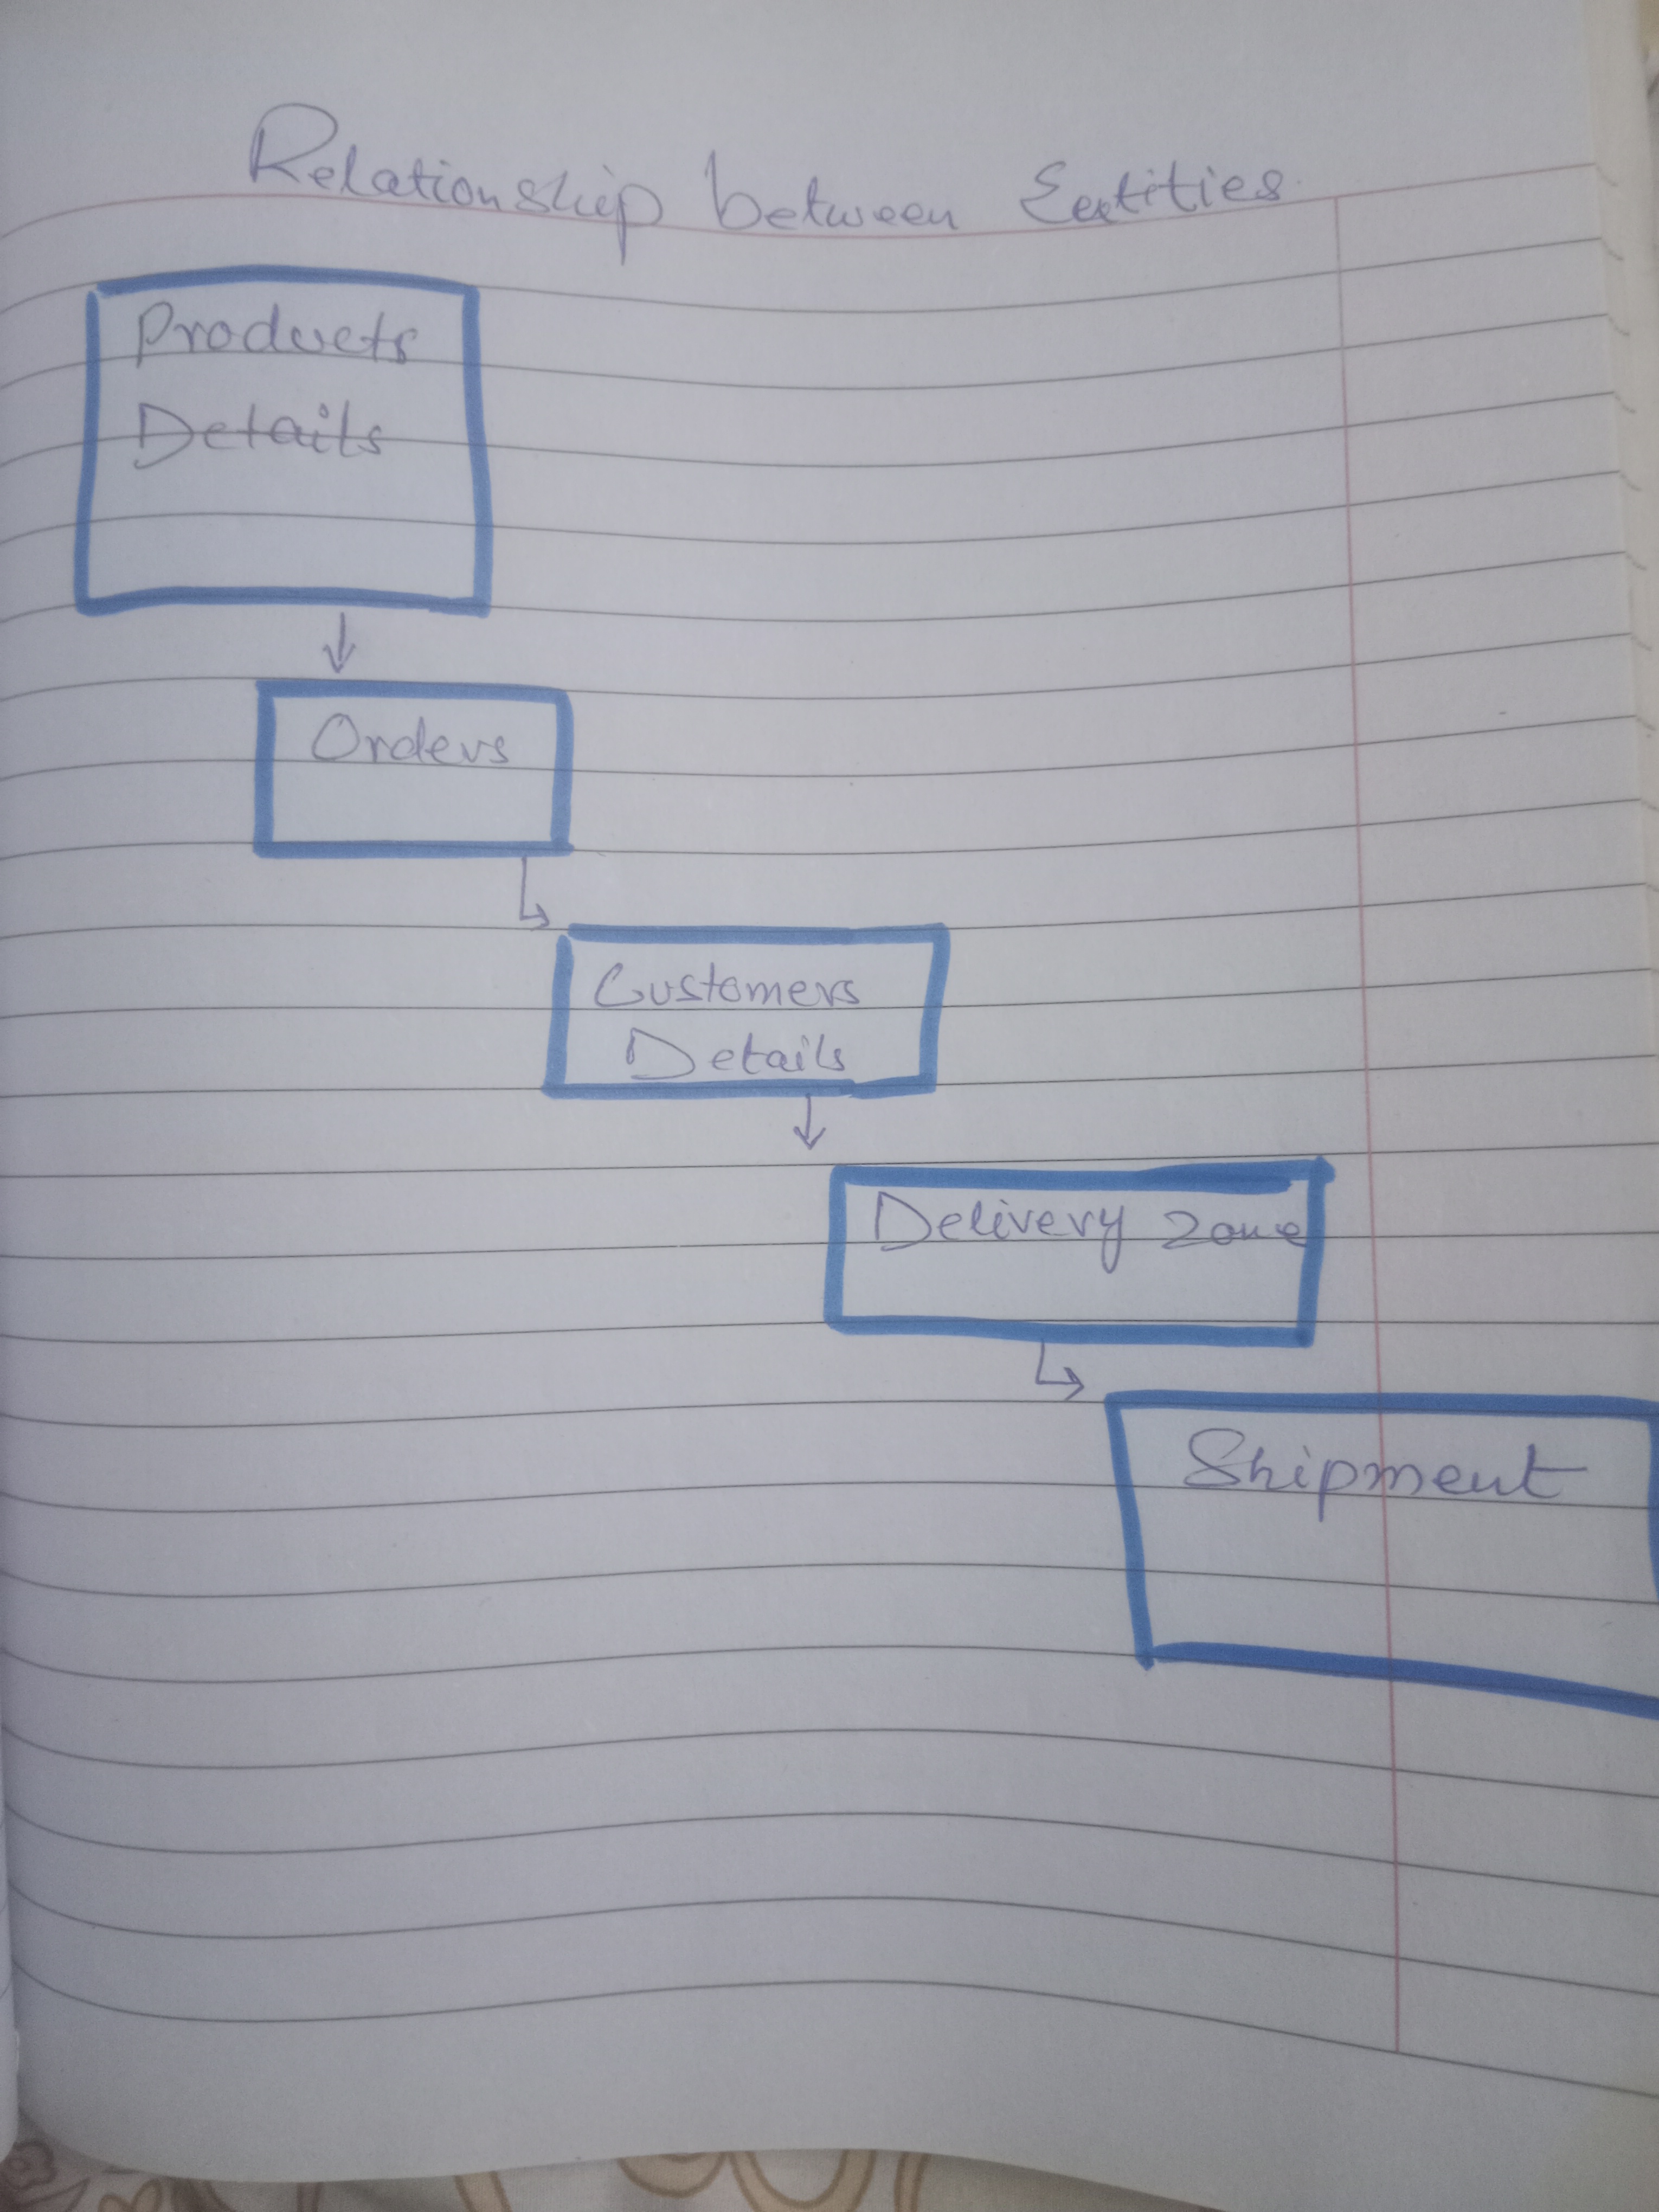 Relationship between Entities
Products
Details
Orders
Customers
Details
Delivery zone
Shipment